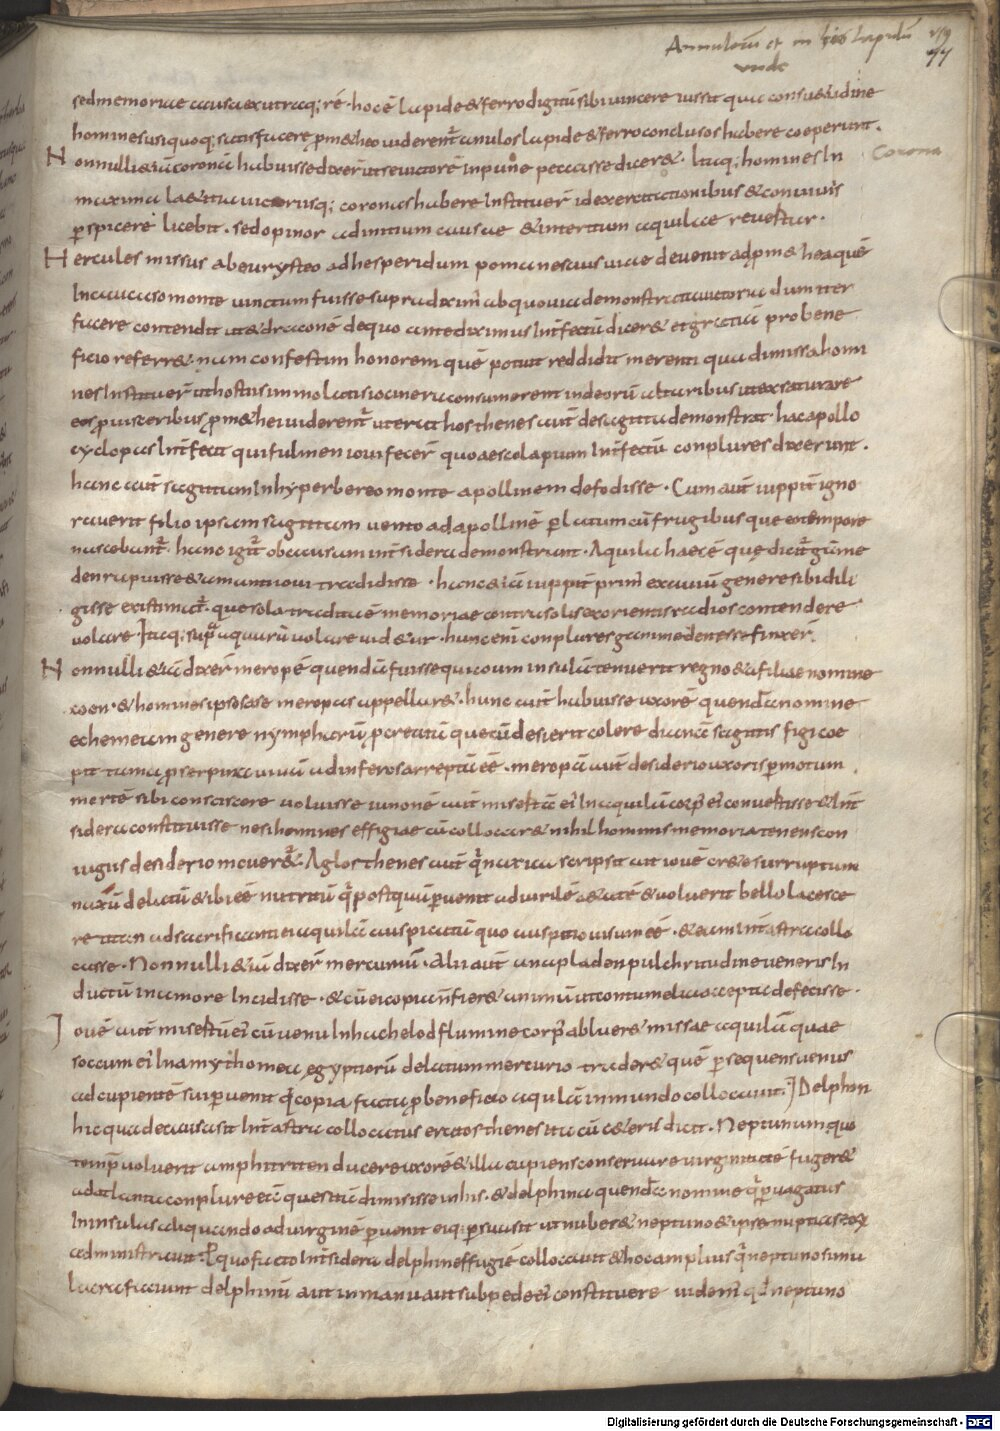 Annulorum et in his lapidum 179
unde 77
sed memoriae causa ex utraq; re· hoc ē lapide & ferro digitū sibi vincere iussit qua consu&udine
homines usi quoq; satisfacere pm&heo viderent̄ anulos lapide & ferro conclusos habere coeperunt.
Nonnulli &iā coronā habuisse dixer̄ ut se victorē inpune peccasse dicer&· Itaq; homines In Corona
maxima la&itia victoriisq; coronas habere Instituer̄ id exercitationibus & conviviis
pspicere licebit· sed opinor ad initium causae & interitum aquilae revestar·
Hercules missus ab eurysteo ad hesperidum poma nescius viae devenit ad pm&hea quē
In caucaso monte vinctum fuisse supra diximꝰ ab quo via demonstrata victoria dum iter
facere contendit ut & draconē de quo ante diximus Intfectū dicer& et gratiā pro bene
ficio referr& nam confestim honorem quē potuit reddidit merenti qua dimissa homi
nes Instituer̄ ut hostiis immolatis iocinera consumerent in deorū altaribus ut exsaturare
eos pro visceribus pm&hei viderent̄ ut eratosthenes aut̄ de sagitta demonstrat· hac apollo
cyclopas Intfecit qui fulmen iovi fecer̄ quo aescolapium Intfectū conplures dixerunt·
hanc aut̄ sagittam In hyperbereo monte apollinem defodisse· Cum aut̄ iuppit̄ igno
raverit filio ipsam sagittam vento ad apollinē platum cū frugibus que eo tempore
nascebant̄· hanc igit̄ ob causam int sidera demonstrant· Aquila haec ē que dicit̄ ganime
den rapuisse & amanti iovi tradidisse· hanc &iā iuppit̄ primꝰ ex aviū genere sibi dili
gisse existimat̄· que sola tradita ē memoriae contra solis exorientis radios contendere
volare· Itaq; sup aquariū volare vid&ur· hunc enī conplures ganimedenesse finxer̄·
Nonnulli &iā dixer̄ meropē quendā fuisse qui coum insulā tenuerit regno & a filiae nomine
coen· & homines ipsos a se meropas appellar&· hunc aut̄ habuisse uxorē quendā nomine
echemeiam genere nympharū pcreatā que cū desierit colere dianā sagittis figi coe
pit tamē p serpina vivā ad inferos arreptā ēē· meropē aut̄ desiderio uxoris pmotum
mortē sibi consciscere voluisse iunonē aut̄ misertā eiꝰ In aquilā corpꝰ eiꝰ convertisse & Int
sidera constituisse ne si hominis effigiae eū collocar& nihil hominis memoria tenens con
iugis desiderio mover&ur· Aglosthenes aut̄ q naxica scripsit ait iovē cr&e surruptum
naxū delatū & ibi ēē nutritū q postquā pvenit ad virilē a&atē & voluerit bello lacesce
re titan ad sacrificanti ei aquilā auspicatū quo auspitio visum ēē· & eam Int astra collo
casse· Nonnulli &iā dixer̄ mercuriū· Alii aut̄ anapladen pulchritudine veneris In
ductū in amore Incidisse· & cū ei copia n̄ fier& animū ut contumelia accepta defecisse·
Iovē aut̄ misertū eiꝰ cū venus In hachelod flumine corpꝰ abluer& missae aquilā quae
soccum eiꝰ In amythomea ęgyptiorū delatum mercurio trader& quē psequens venus
ad cupientē sui pvenit q copia facta p beneficio aquilā in mundo collocavit· Delphin
hic qua de causa sit Int astra collocatus eratosthenes ita cū c&eris dicit· Neptunum quo
tempꝰ voluerit amphitriten ducere uxorē & illa cupiens conservare virginitatē fuger&
ad atlanta conplures eā quesitū dimisisse in his· & delphina quendā nomine q pvagatus
In insulas aliquando ad virginē pvenit eiq; psuasit ut nuber& neptuno & ipse nuptias eox
administravit· P quo facto Int sidera delphini effigiē collocavit & hoc amplius q neptuno simu
lacra faciunt delphinū aut in manu aut sub pede eiꝰ constituere videmꝰ qđ neptuno
Digitalisierung gefördert durch die Deutsche Forschungsgemeinschaft - DFG